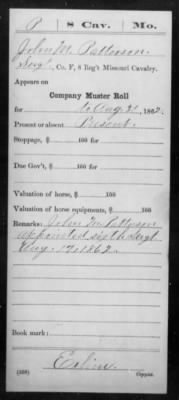 P 8 Cav. Mo.
John M. Patterson
Serg't, Co. F, 8 Reg't Missouri Cavalry.
Company Muster Roll
for to Aug 21, 1862.
Present or absent Present
Stoppage, $ 100 for
Due Gov't, $ 100 for
Valuation of horse, $ 100
Valuation of horse equipments, $ 100
Remarks: John M. Patterson
appointed sixth Sergt
Aug. 17, 1862.
Book mark:
(358) Copyist.